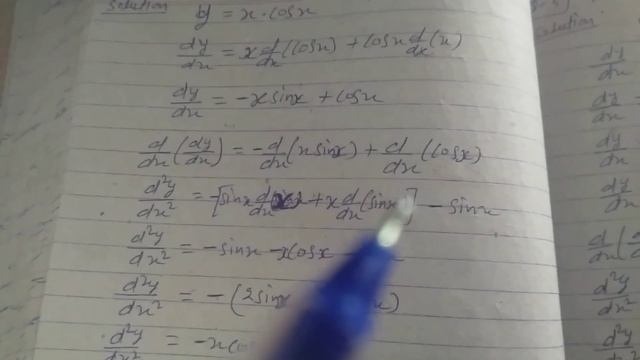 Solution
y = x.cosx
dy/dx = x d/dx (cosx) + cosx d/dx (x)
dy/dx = -x sinx + cosx
d/dx (dy/dx) = -d/dx (x sinx) + d/dx (cosx)
d²y/dx² = -[sinx d/dx + x d/dx (sinx)] - sinx
d²y/dx² = -sinx - xcosx
d²y/dx² = -(2sinx x)
d²y/dx² = -xco
Solution
dy/dx
dy/dx
dy/dx
dy/dx
d/dx
d²y/dx²
d²y/dx²